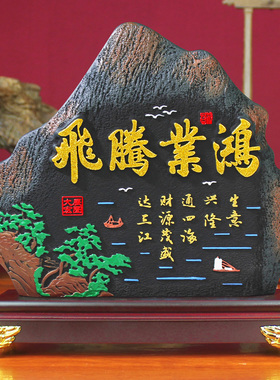 鴻業騰飛
生意
兴隆
通四海
财源茂盛
达三江